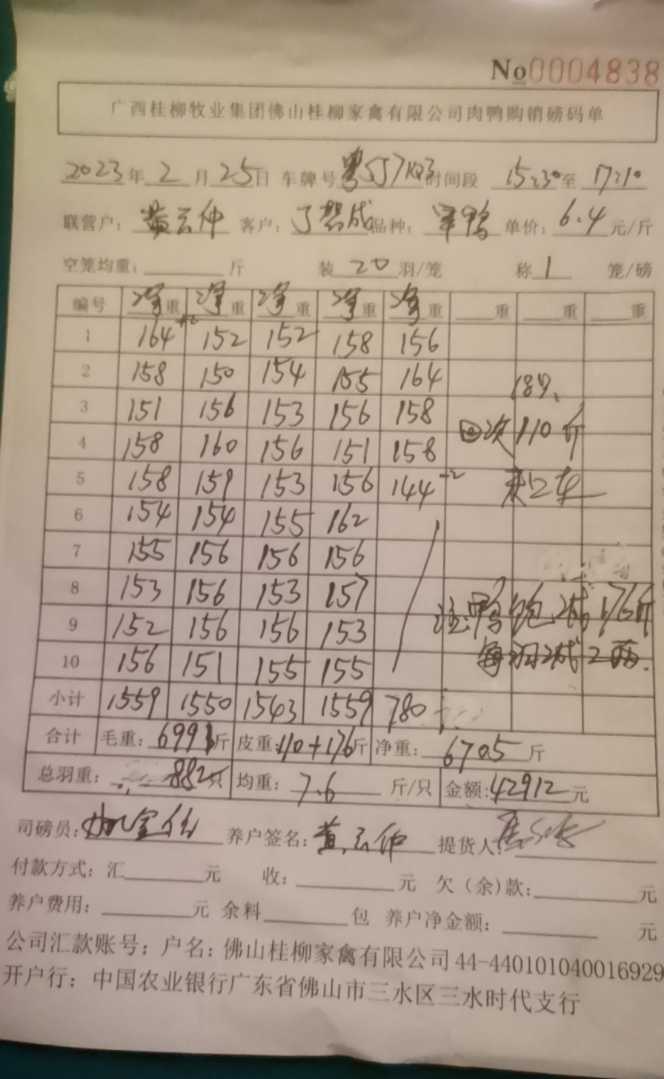 No0004838
广西桂柳牧业集团佛山桂柳家禽有限公司肉鸭购销磅码单
2023年 2 月 25日 车牌号 粤 时间段 15:30至 17:10
联营户: 黄云仲 客户: 品种: 鸭 单价: 6.4 元/斤
空笼均重: 斤 装 20 羽/笼 称 1 笼/磅
编号 净重 净重 净重 净重 净重 重 重 重
1 164 +2 152 152 158 156
2 158 150 154 155 164
3 151 156 153 156 158
4 158 160 156 151 158 回次 110斤
5 158 159 153 156 144 -2
6 154 154 155 162
7 155 156 156 156
8 153 156 153 157
9 152 156 156 153 注:鸭饱减176斤
10 156 151 155 155 每羽减2两.
小计 1559 1550 1543 1559 780
合计 毛重: 6991斤 皮重:110+176斤 净重: 6705 斤
总羽重: 882只 均重: 7.6 斤/只 金额:42912 元
司磅员: 养户签名: 黄云仲 提货人:
付款方式: 汇 元 收: 元 欠(余)款: 元
养户费用: 元 余料 包 养户净金额: 元
公司汇款账号: 户名: 佛山桂柳家禽有限公司 44-440101040016929
开户行: 中国农业银行广东省佛山市三水区三水时代支行